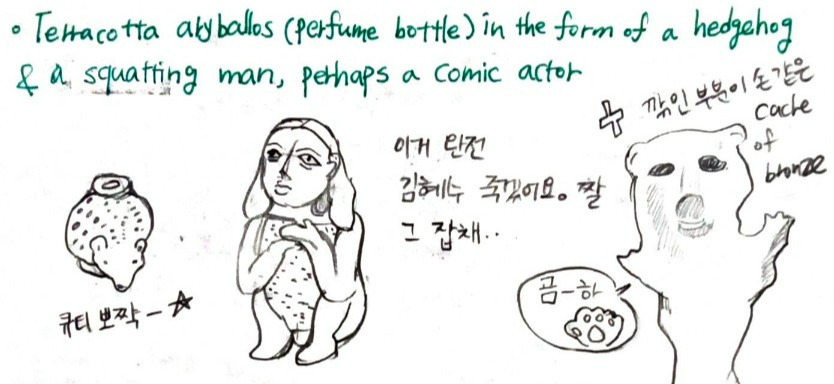 • Terracotta aryballos (perfume bottle) in the form of a hedgehog
& a squatting man, perhaps a comic actor
깎인 부분이 손같은
cache
of
bronze
이거 완전
김혜수 죽겠어요. 짤
그 잡채..
곰-하
큐티뽀짝-☆